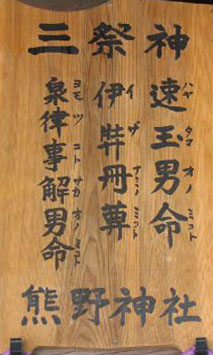 三祭神
速玉男命
ハヤ タマ オノ ミコト
伊弉冊尊
イ ザ ナミノ ミコト
泉律事解男命
ヨモ ツ コト サカ オノ ミコト
熊野神社